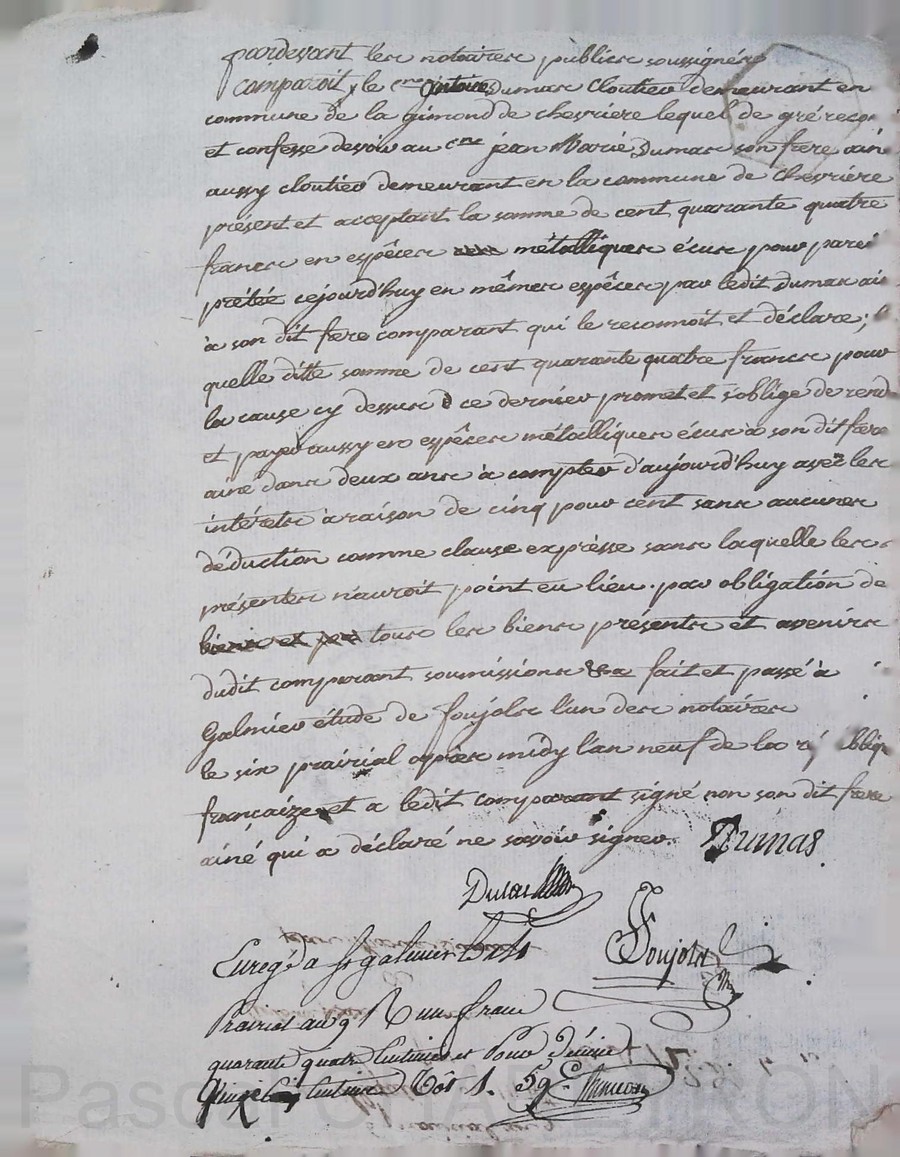 pardevant les notaires publics soussignés
comparoit le cen Antoine Dumas cloutier demeurant en
commune de la gimond de chevriere lequel de gré recon
et confesse devoir au cen jean Marie Dumas son frere ainé
aussy cloutier demeurant en la commune de chevriere
présent et acceptant la somme de cent quarante quatre
francs en espèces métalliques écus pour pareil
prêtée cejourd'huy en mêmes espèces par ledit Dumas ain
à son dit frere comparant qui le reconnoit et déclare; l
quelle ditte somme de cent quarante quatre francs pour
la cause cy dessus ce dernier promet et s'oblige de rend
et payer aussy en espèces métalliques écus à son dit frere
ainé dans deux ans à compter d'aujourd'huy avec les
intérets à raison de cinq pour cent sans aucunes
déduction comme clause expresse sans laquelle les
présentes n'auroit point eu lieu. par obligation de
biens et par tous les biens présents et avenirs
dudit comparant soumissions &a fait et passé à
Galmier étude de foujols l'un des notaires
le six prairial après midy l'an neuf de la ré bliq
françaize et a ledit comparant signé non son dit frere
ainé qui a déclaré ne savoir signer. Dumas
Foujols
Enregé a St galmier le
Prairial an 9 R un franc
quarante quatre centimes et Pour Décime
quinze centimes
Pascal CHA TRON